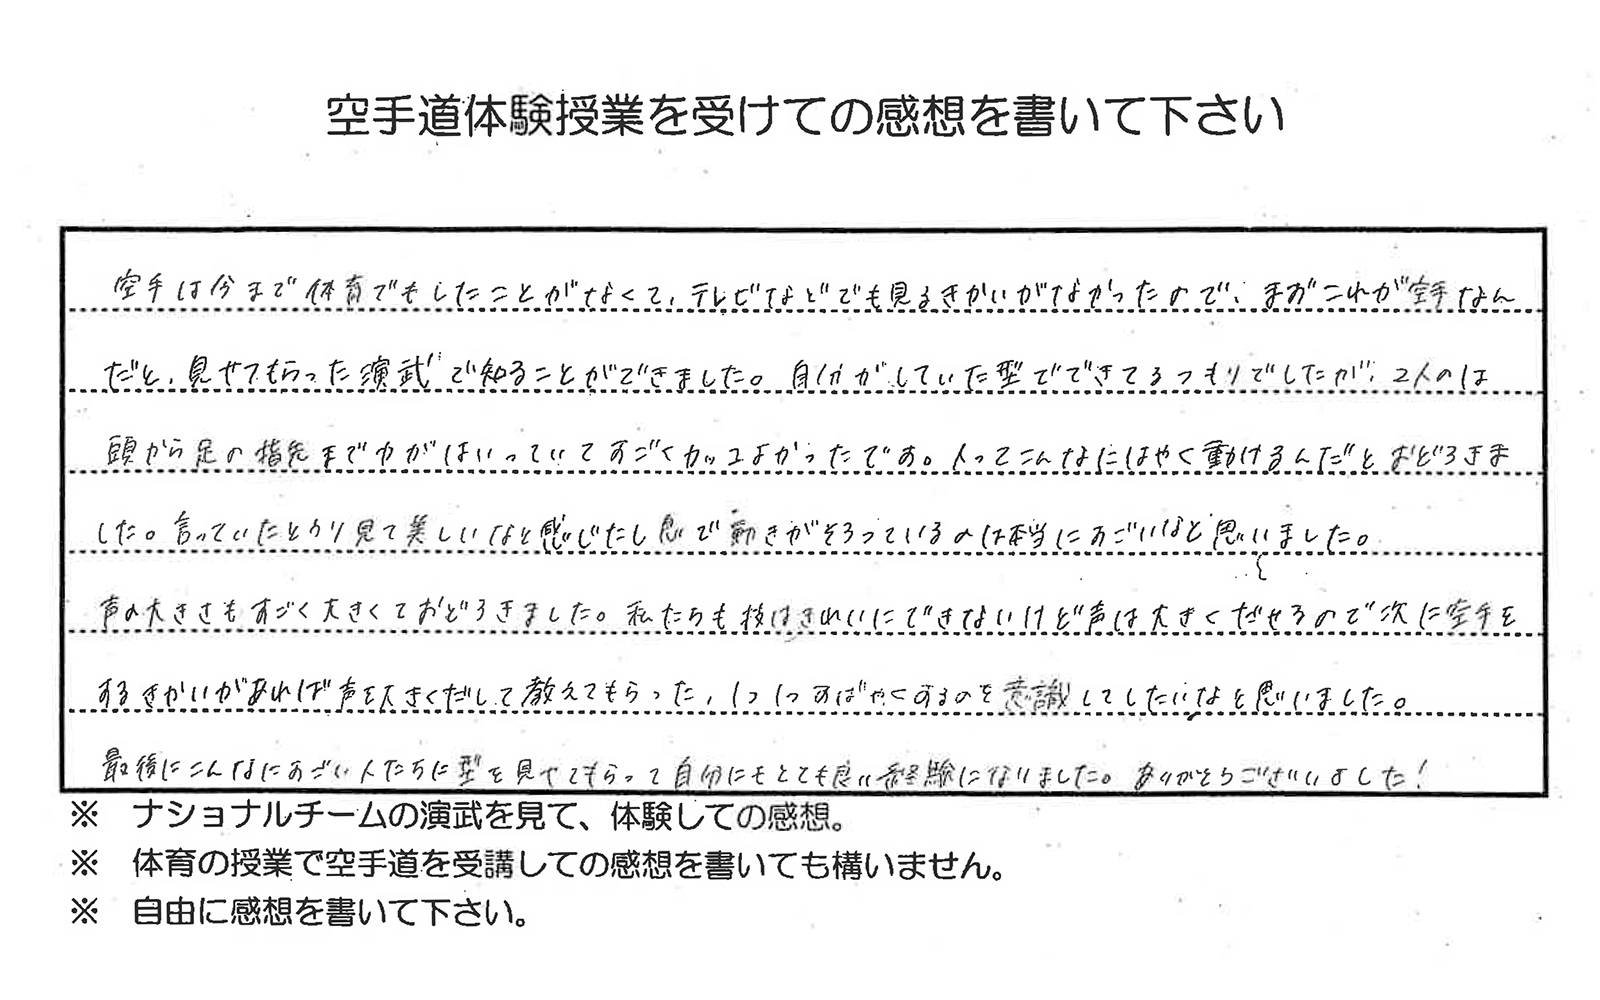 空手道体験授業を受けての感想を書いて下さい
空手は今まで体育でもしたことがなくて、テレビなどでも見るきかいがなかったので、まずこれが空手なん
だと、見せてもらった演武で知ることができました。自分がしていた型でできてるつもりでしたが、2人のは
頭から足の指先まで力がはいっていてすごくカッコよかったです。人ってこんなにはやく動けるんだとおどろきま
した。言っていたとうり見て美しいなと感じたし息で動きがそろっているのは本当にすごいなと思いました。
声の大きさもすごく大きくておどろきました。私たちも技はきれいにできないけど声は大きくだせるので次に空手を
するきかいがあれば声を大きくだして教えてもらった、1つ1つすばやくするのを意識してしたいなと思いました。
最後にこんなにすごい人たちに型を見せてもらって自分にもとても良い経験になりました。ありがとうございました!
※ ナショナルチームの演武を見て、体験しての感想。
※ 体育の授業で空手道を受講しての感想を書いても構いません。
※ 自由に感想を書いて下さい。